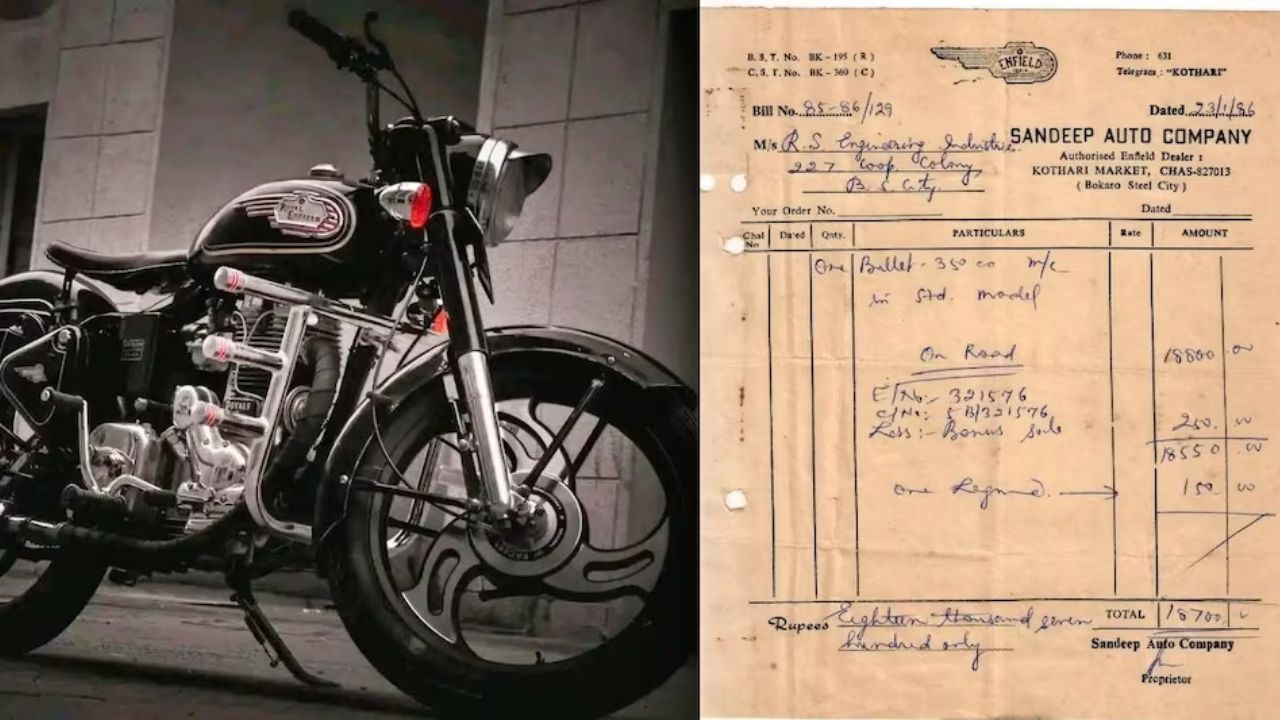 ROYAL
ENFIELD
B.S.T. No. BK-195 (R)
C.S.T. No. BK-360 (C)
ENFIELD
Phone : 631
Telegram : "KOTHARI"
Bill No. 85-86/129
Dated 23/1/86
M/s R.S. Engineering Industries
227 Coop. Colony
B. S. City.
SANDEEP AUTO COMPANY
Authorised Enfield Dealer :
KOTHARI MARKET, CHAS-827013
( Bokaro Steel City )
Your Order No.
Dated
Chal No Dated Qnty. PARTICULARS Rate AMOUNT
One Bullet-350 cc m/c
in Std. model
On Road 18800.00
E/No:- 321576
C/No:- 5B/321576
Less:- Bonus sale 250.00
18550.00
One Legguard. 150.00
Rupees Eighteen thousand seven TOTAL 18700
hundred only
Sandeep Auto Company
Proprietor